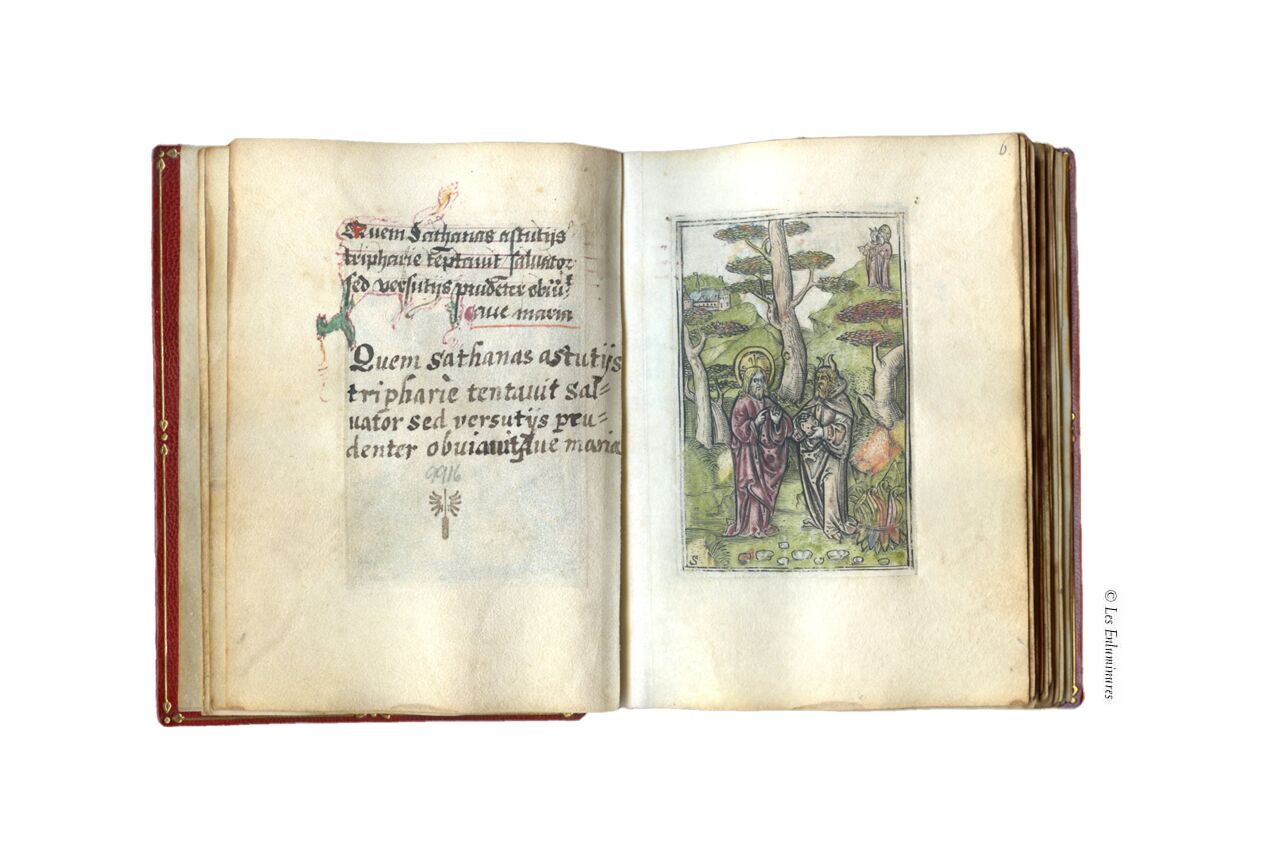 Quem Sathanas astutijs
tripharie tẽptauit saluator
sed versutijs prudẽter obiũᵗ
aue maria
Quem Sathanas astutijs
tripharie tentauit Sal=
uator sed versutijs pru=
denter obviauit Aue maria
9916
6.
S
© Les Enluminures